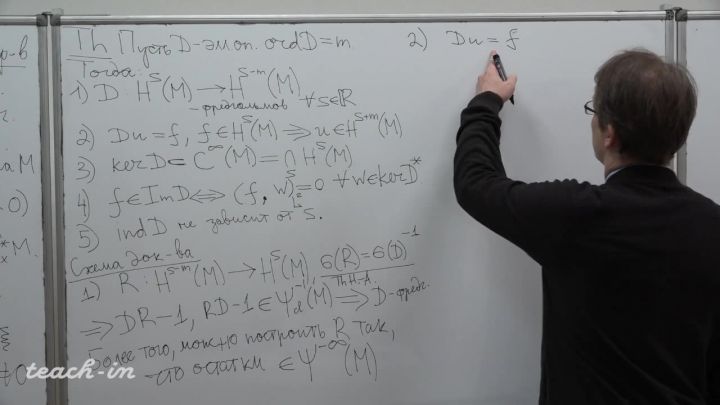 Th Пусть D-эл.оп. ord D=m.
Тогда:
1) D: H^s(M) → H^{s-m}(M)
- фредгольмов ∀s∈ℝ
2) Du=f, f∈H^s(M) ⟹ u∈H^{s+m}(M)
3) ker D ⊂ C^∞(M) = ∩_s H^s(M)
4) f∈Im D ⟺ (f, w)_{L²}=0 ∀w∈ker D*
5) ind D не зависит от s.
Схема док-ва
1) R: H^{s-m}(M) → H^s(M), σ(R)=σ(D)^{-1}
⟹ DR-1, RD-1 ∈ Ψ_{cl}^{-1}(M) ⟹ D-фредг.
Более того, можно построить R так,
что остатки ∈ Ψ^{-∞}(M)
2) Du = f
р-в
M
0)
M.
teach-in